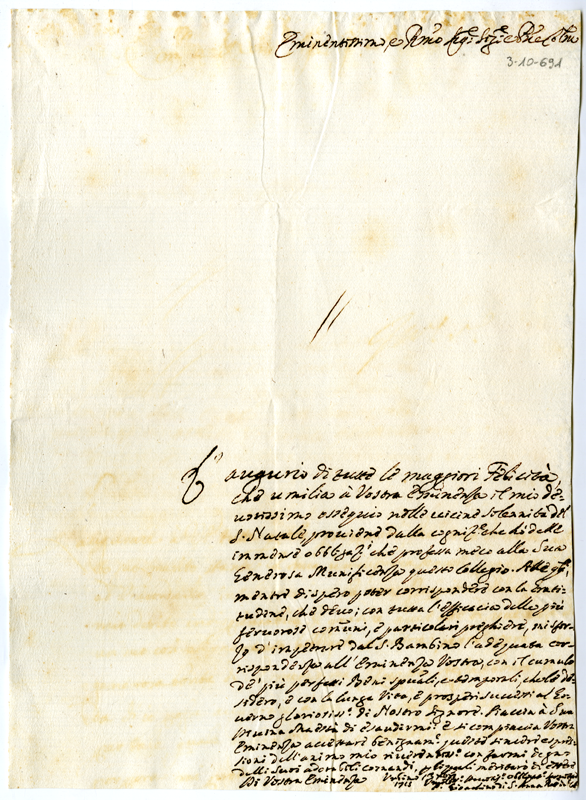 Eminentissimo e Rmo Sigr Sigr e Pne Colmo
3-10-691
L'augurio di tutte le maggiori Felicità,
che umilia à Vostra Eminenza il mio de-
votissimo ossequio nelle vicine Solennità del
S. Natale, proviene dalla che hò delle
immense obbligaz.i che professa meco alla Sua
Generosa Munificenza questo Collegio. Alle
mentre dispero poter corrispondere con la Grati-
tudine, che devo; con tutta l'efficacia delle più
fervorose comuni, e particolari preghiere, mi sfor-
zo d'impetrare dal S. Bambino l'adequata cor-
rispondenza all'Eminenza Vostra, con il cumulo
de' più perfetti Beni spirituali, e temporali, che le de-
sidero, e con la lunga Vita, e prosperi successi al Go-
verno gloriosiss.o di Nostro Signore. Piaccia à Sua
Divina Maestà di esaudirmi: e si compiaccia Vostra
Eminenza accettare benignam.te queste sincere espres-
sioni dell'animo mio riverentiss.o con farmi degno
delli Suoi adorabili comandi,
Di Vostra Eminenza
Urbino